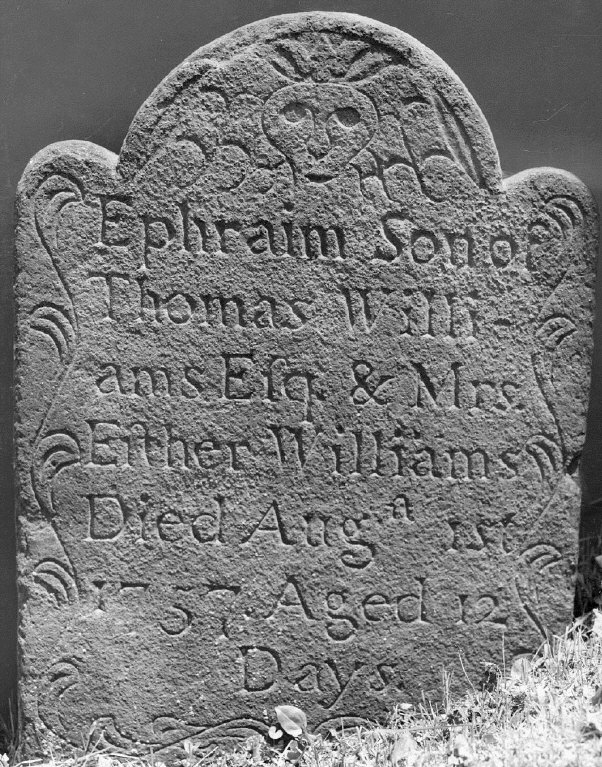 Ephraim Son of
Thomas Willi-
ams Eſq. & Mrs.
Eſther Williams
Died Aug.ᵃ 1st
1757. Aged 12
Days.